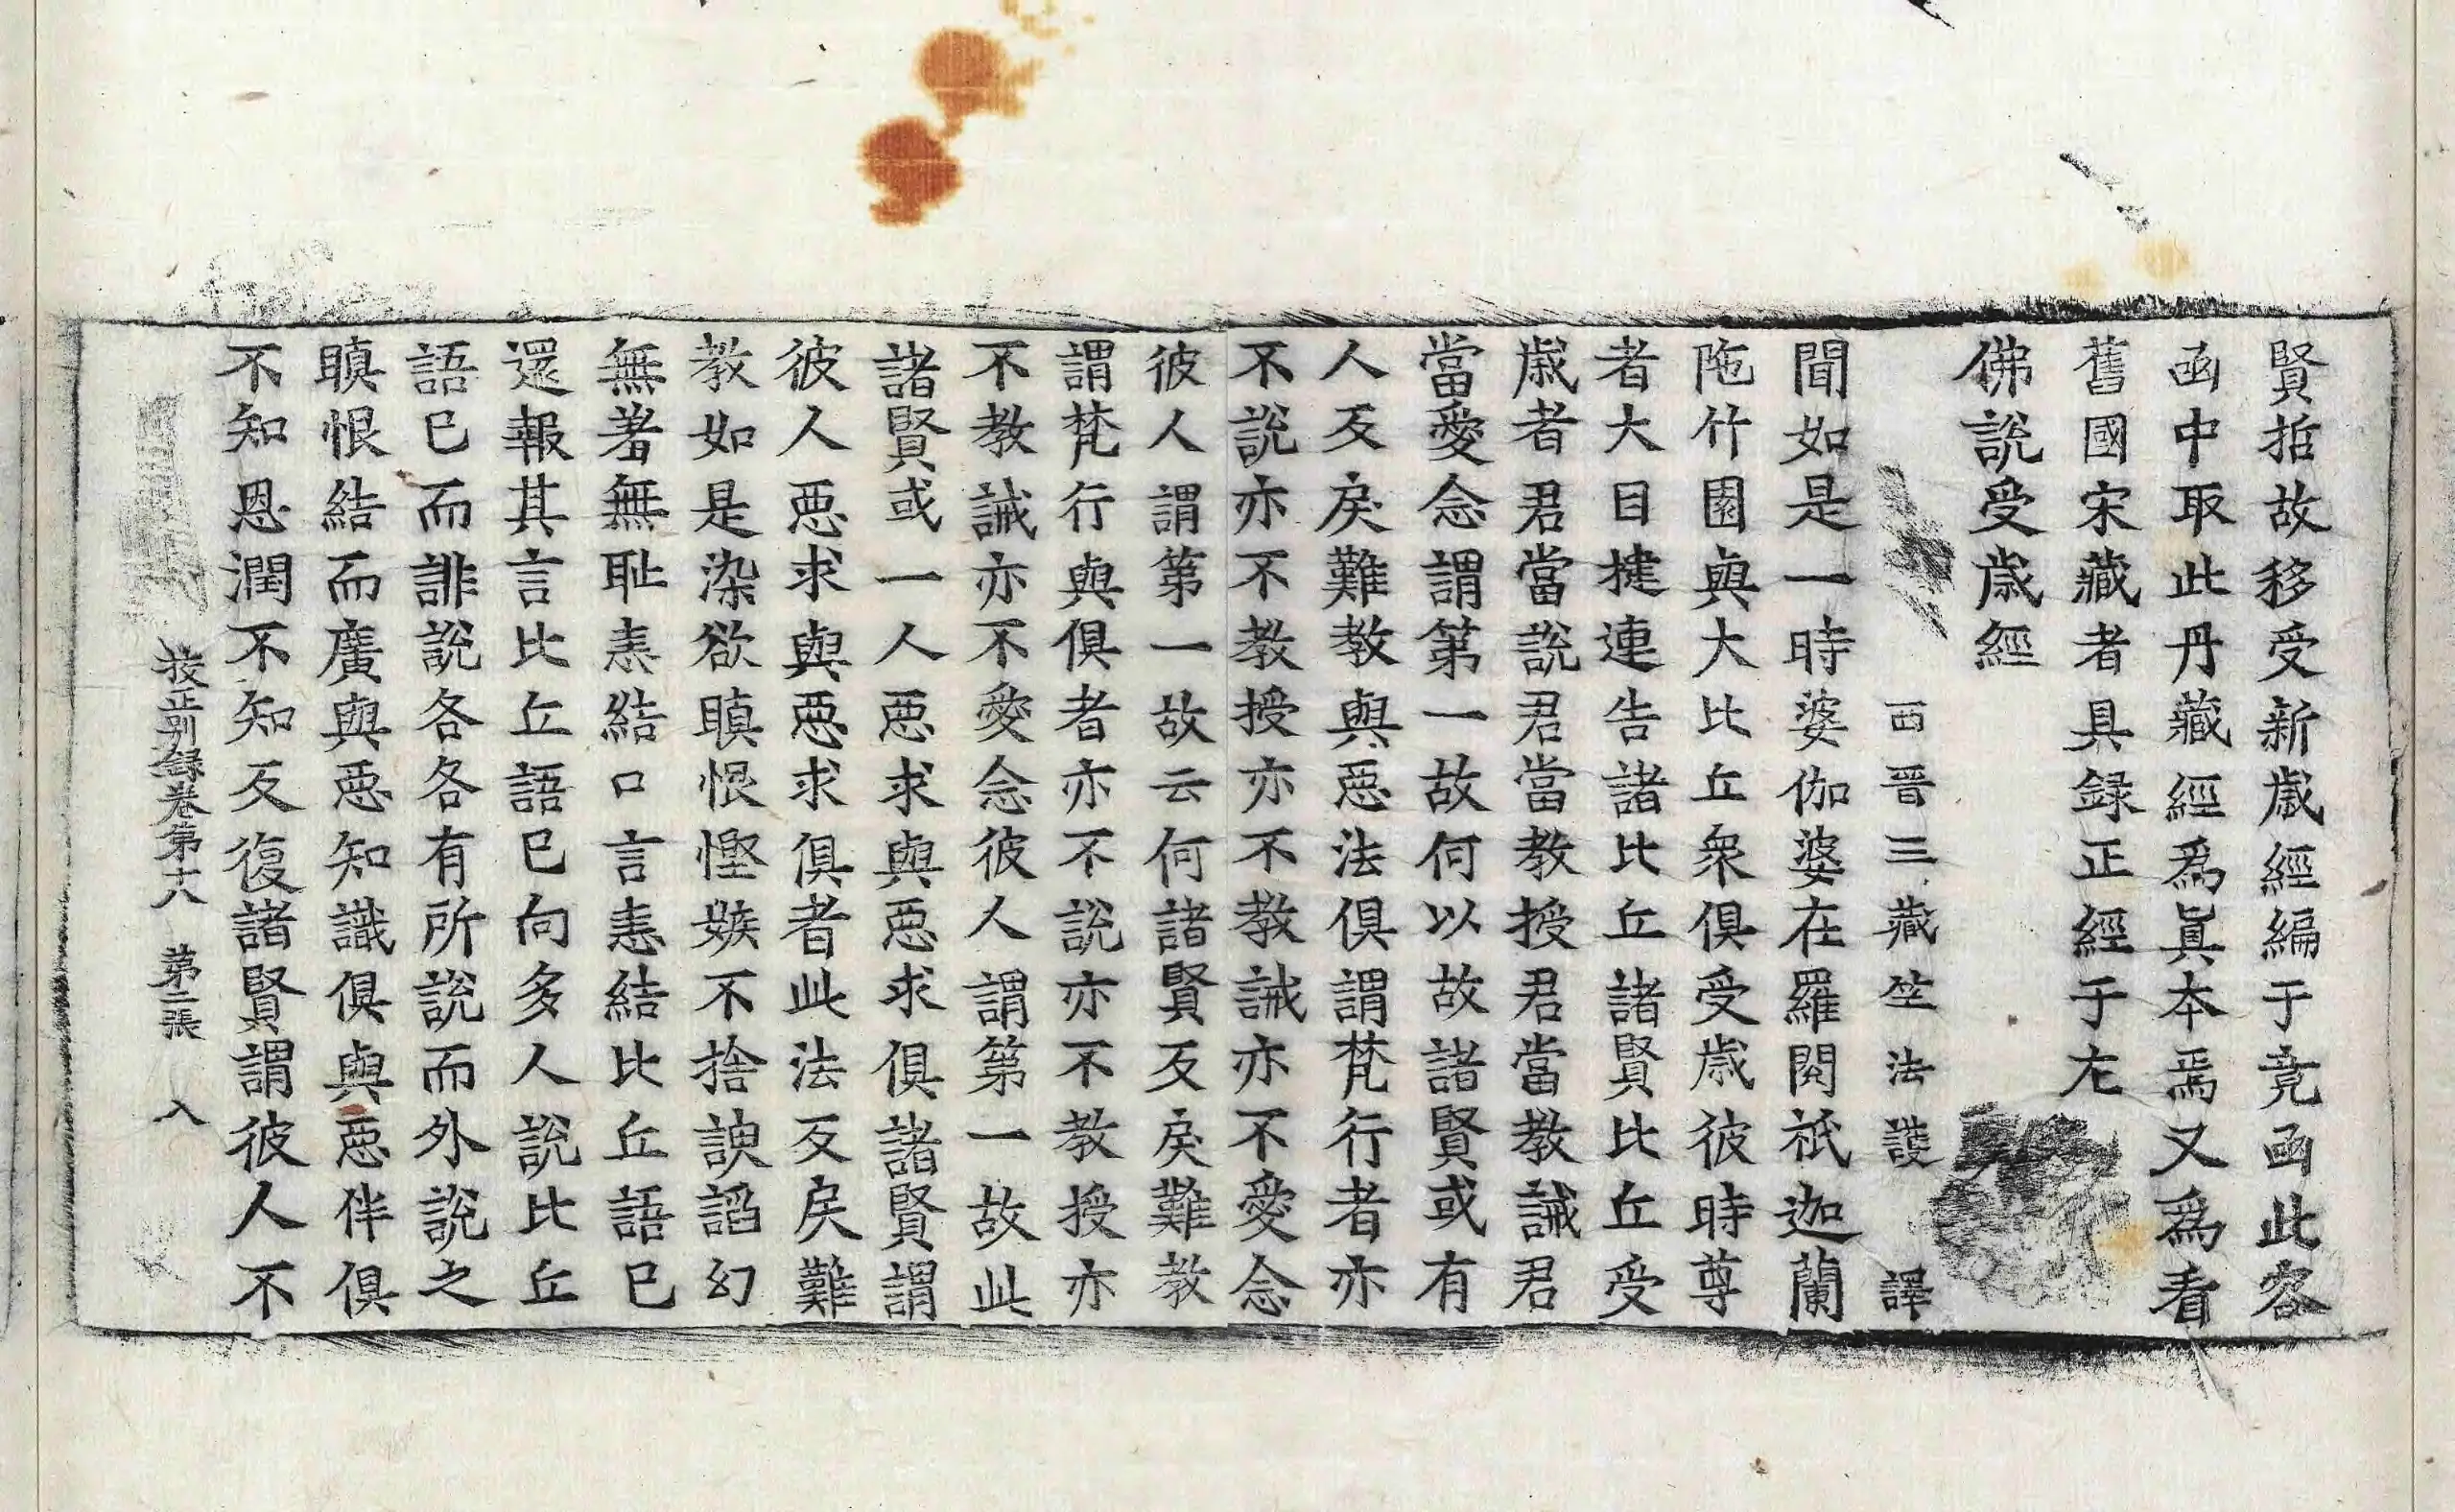 賢哲故移受新歲經編于竟函此客
函中取此丹藏經爲眞本焉又爲看
舊國宋藏者具録正經于左
佛說受歲經
西晉三藏竺法護譯
聞如是一時婆伽婆在羅閱祇迦蘭
陁竹園與大比丘衆俱受歲彼時尊
者大目揵連告諸比丘諸賢比丘受
歲者君當說君當教授君當教誡君
當愛念謂第一故何以故諸賢或有
人反戾難教與惡法俱謂梵行者亦
不說亦不教授亦不教誡亦不愛念
彼人謂第一故云何諸賢反戾難教
謂梵行與俱者亦不說亦不教授亦
不教誡亦不愛念彼人謂第一故此
諸賢或一人惡求與惡求俱諸賢謂
彼人惡求與惡求俱者此法反戾難
教如是染欲瞋恨慳嫉不捨諛諂幻
無著無恥恚結口言恚結比丘語已
還報其言比丘語已向多人說比丘
語已而誹說各各有所說而外說之
瞋恨結而廣與惡知識俱與惡伴俱
不知恩潤不知反復諸賢謂彼人不
挍正別録卷第十八 第二張 入